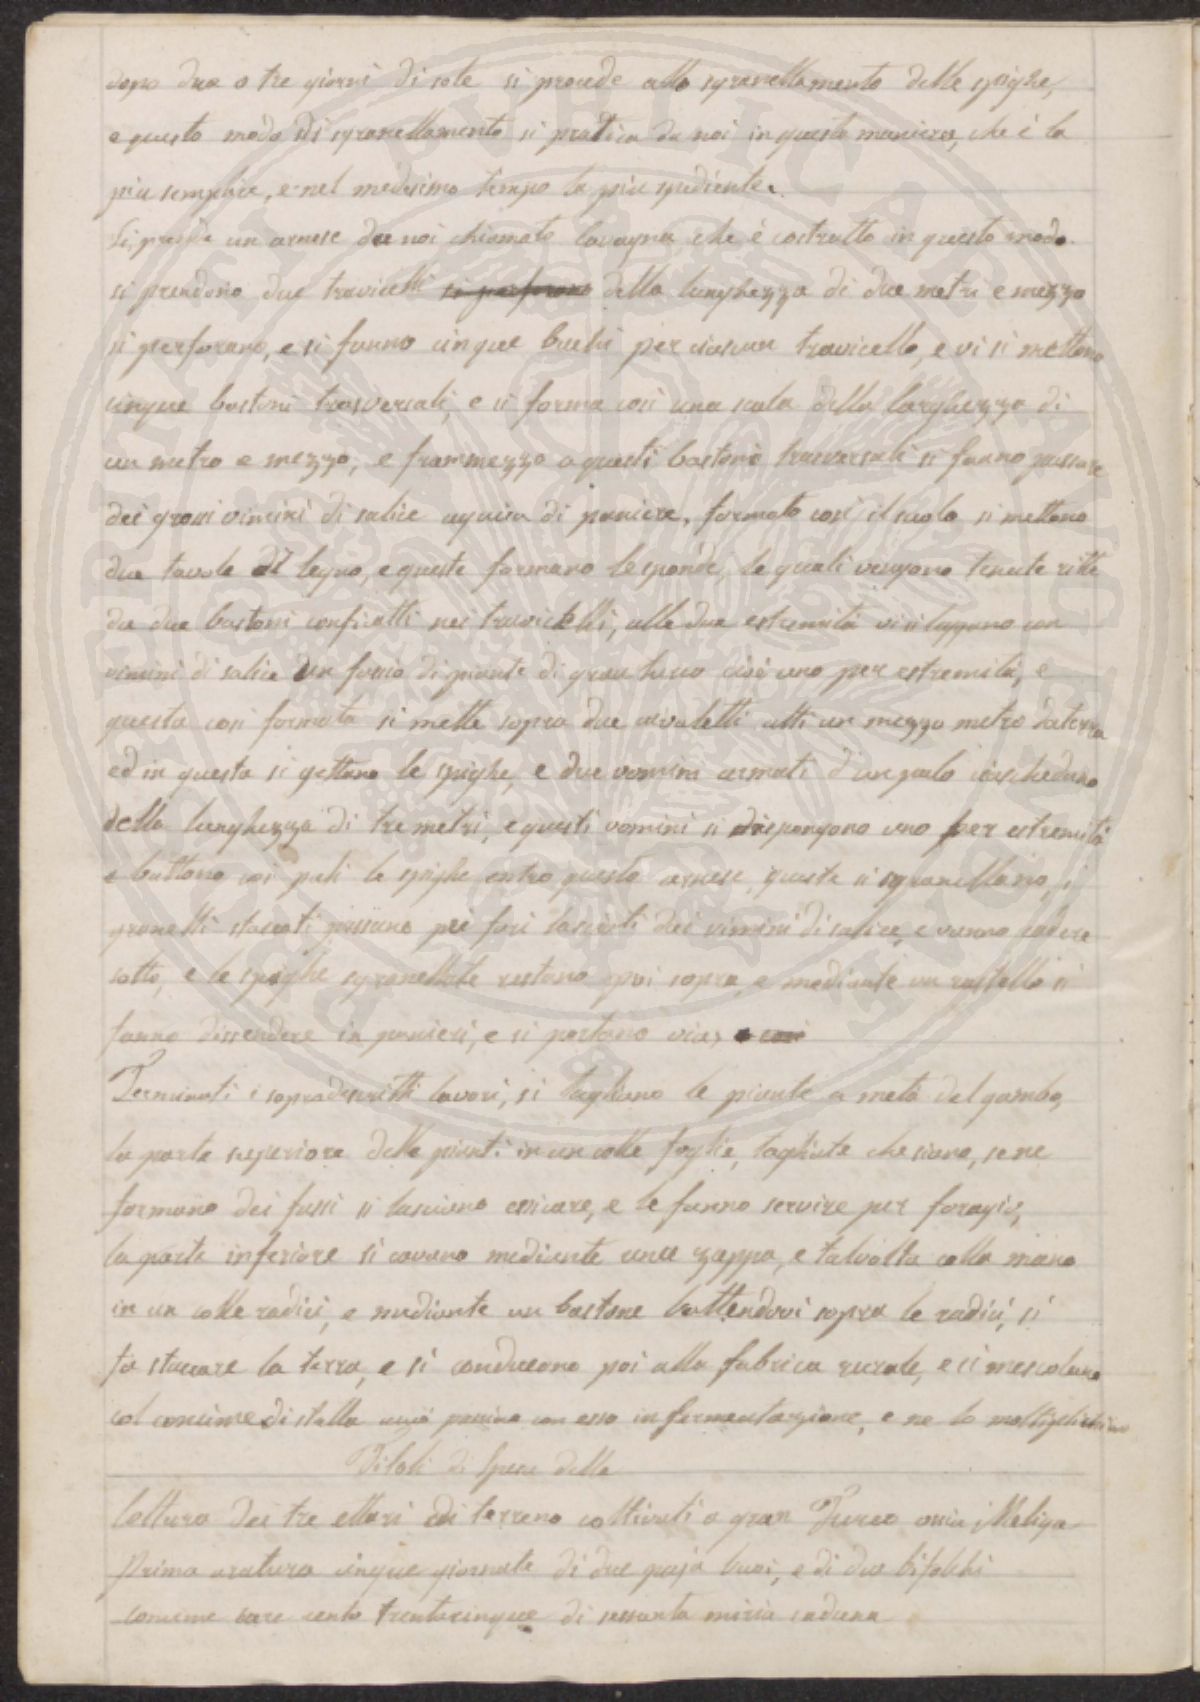 dopo due o tre giorni di sole si procede allo sgranellamento delle spighe,
e questo modo di sgranellamento si pratica da noi in questa maniera, che è la
più semplice, e nel medesimo tempo la più spediente.
Si prende un arnese da noi chiamato lavagna che è costrutto in questo modo.
si prendono due travicelli si perforano della lunghezza di due metri e mezzo
si perforano, e si fanno cinque buchi per ciascun travicello, e vi si mettono
cinque bastoni trasversali, e si forma così una scala della larghezza di
un metro e mezzo, e frammezzo a questi bastoni trasversali si fanno passare
dei grossi vimini di salice aguisa di paniere, formato così il suolo si mettono
due tavole di legno, e queste formano le sponde, le quali vengono tenute ritte
da due bastoni conficatti nei travicelli, alle due estremità vi si lappano con
vimini di salice un fascio di piante di gran turco cioè uno per estremità, e
questa così formata si mette sopra due cavaletti alti un mezzo metro da terra
ed in questa si gettano le spighe, e due uomini armati d'un palo ciascheduno
della lunghezza di tre metri, e questi uomini si dispongono uno per estremità
e battono coi pali le spighe entro questo arnese, queste si sgranellano, i
granelli staccati passano pei fori lasciati dei vimini di salice, e vanno cadere
sotto, e le spighe sgranellate restano poi sopra, e mediante un rastello si
fanno dissendere in panieri, e si portano via, e così
Terminati i sopradescritti lavori, si tagliano le piante a metà del gambo,
la parte superiore delle pianti in un colle foglie, tagliate che siano, se ne
formano dei fassi si lasciano essicare, e le fanno servire per foragio,
la parte inferiore si cavano mediante una zappa, e talvolta colla mano
in un colle radici, e mediante un bastone battendovi sopra le radici, si
fa staccare la terra, e si conducono poi alla fabrica rurale, e si mescolano
col concime di stalla acciò passino con esso in fermentazione, e ne lo
Titoli di spese della
Coltura dei tre ettari di terreno coltivati a gran Turco ossia Meliga
Prima aratura cinque giornate di due paja buoi, e di due bifolchi
concime care cento trentacinque di sessanta miria caduna